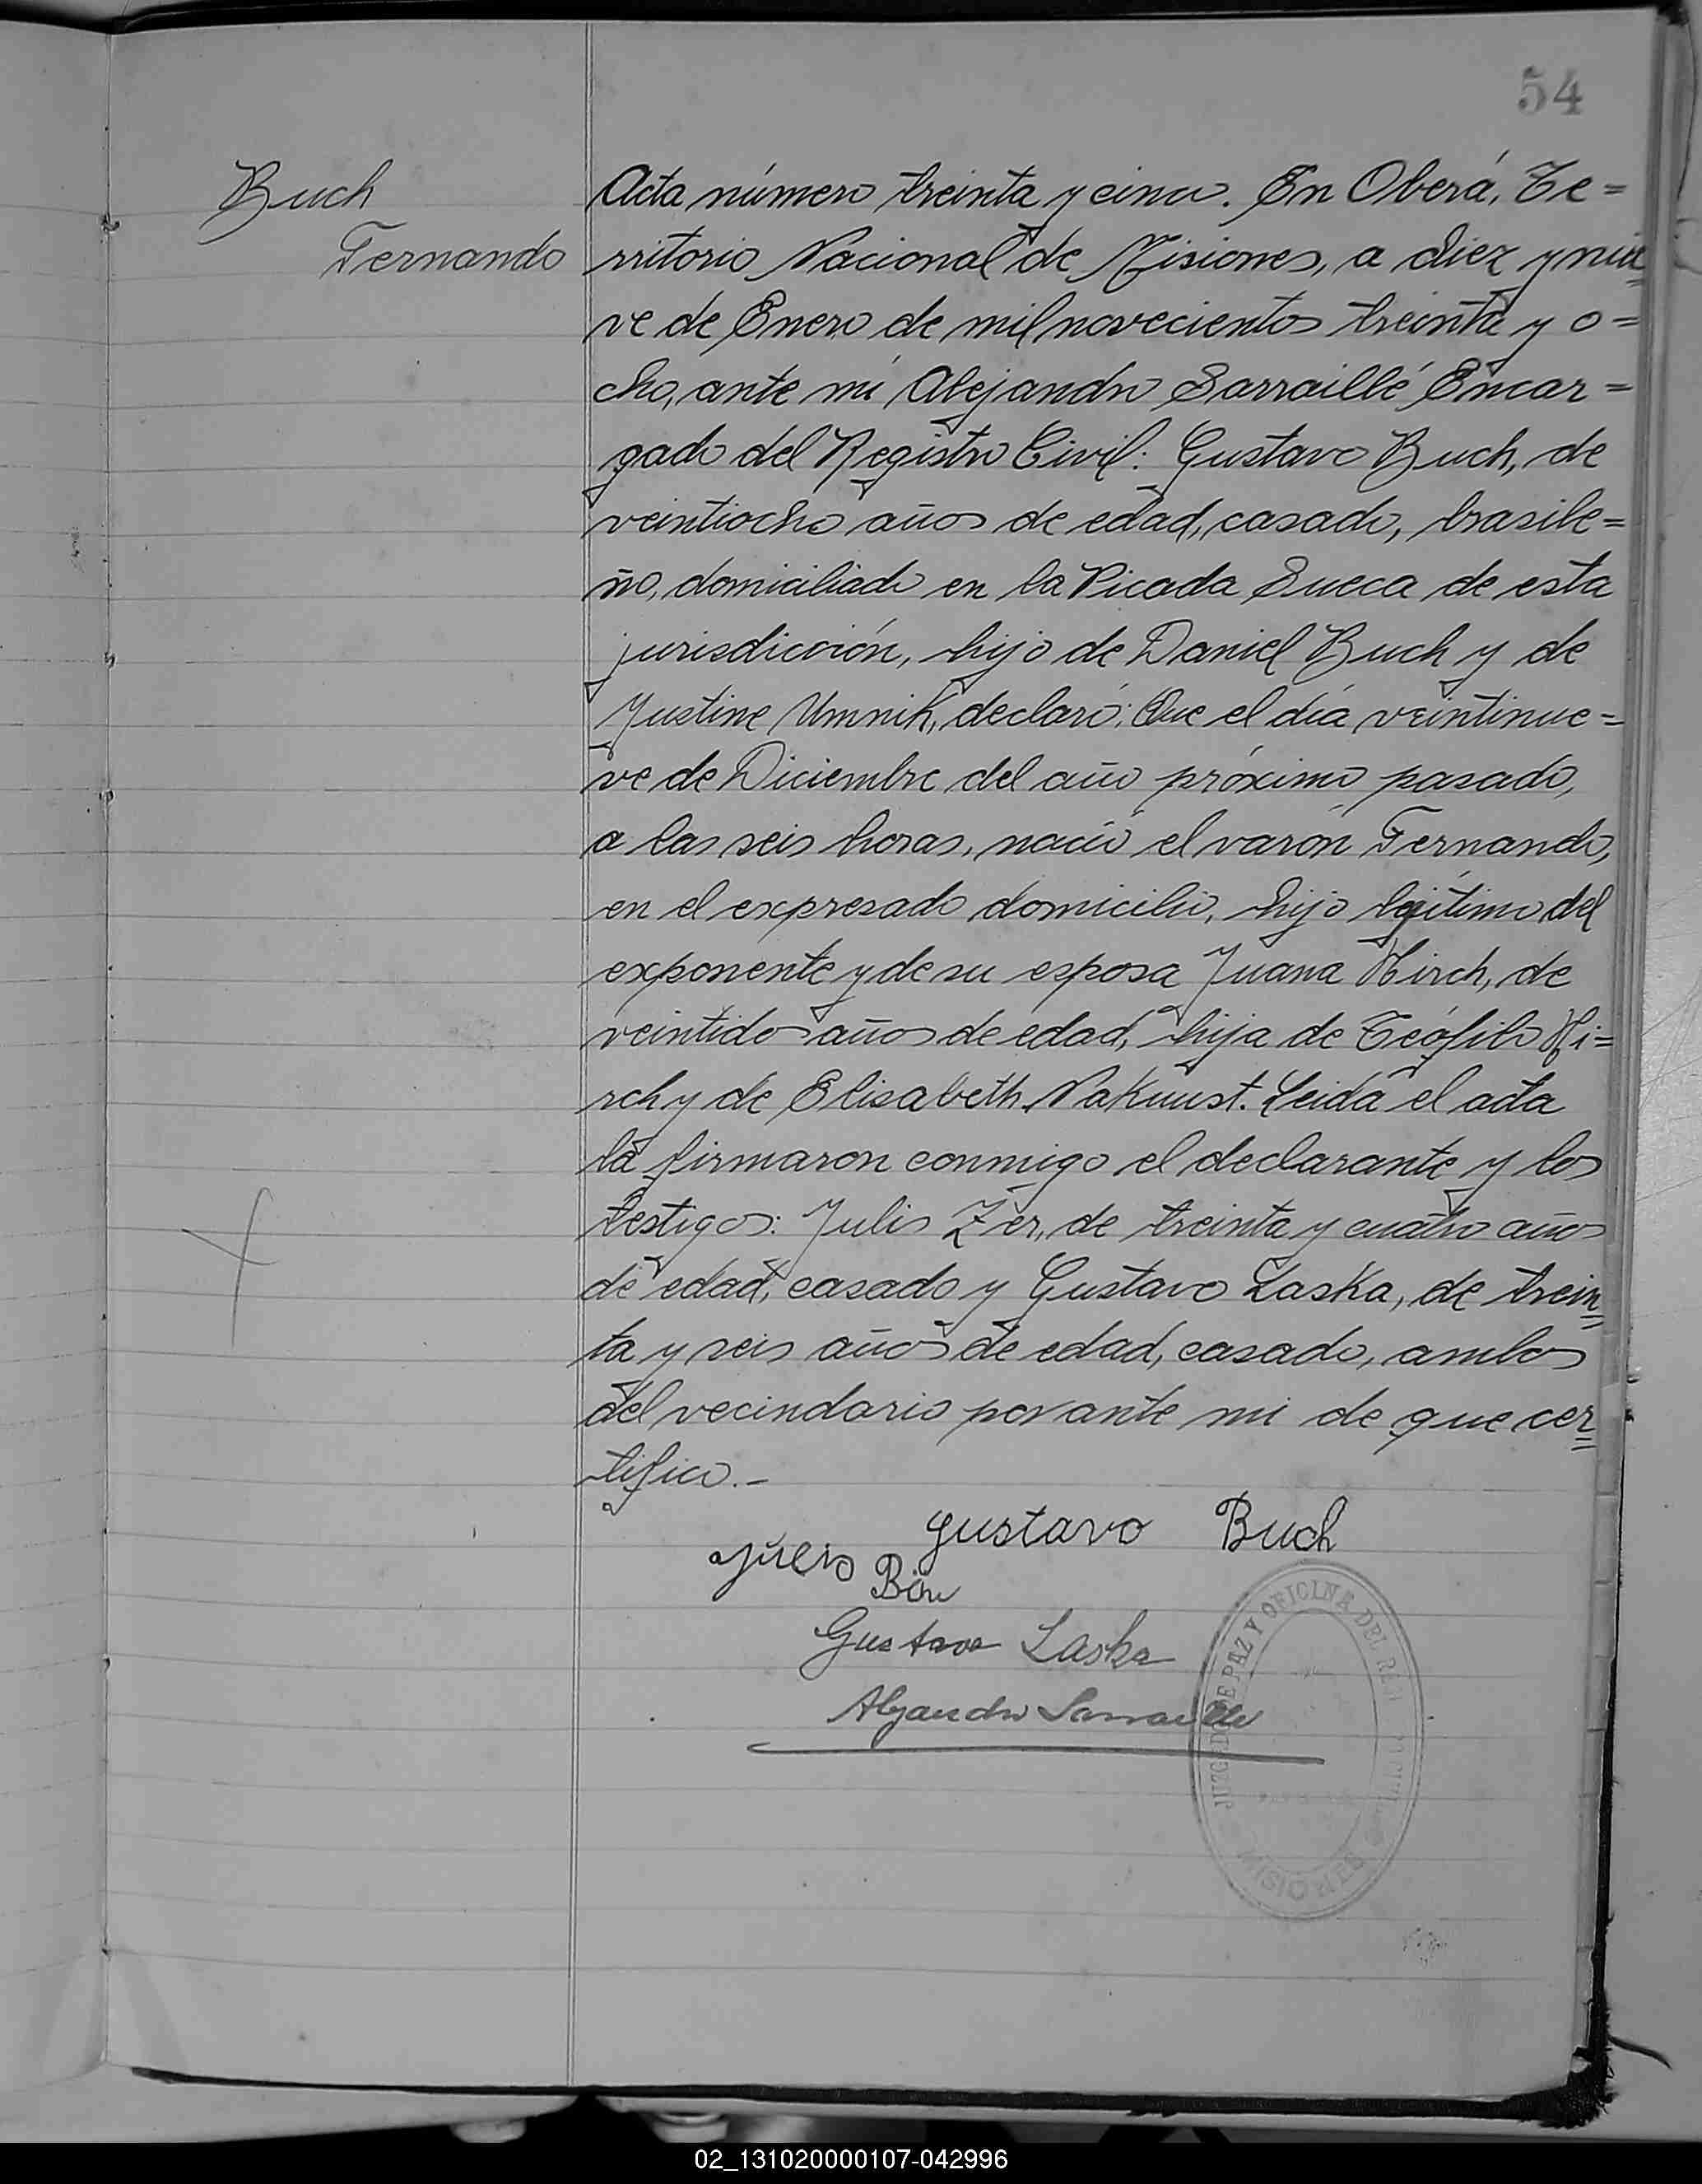 54
Buch
Fernando
Acta número treinta y cinco. En Oberá, Te=
rritorio Nacional de Misiones, a diez y nue
ve de Enero de mil novecientos treinta y o=
cho, ante mi Alejandro Sarraillé Encar=
gado del Registro Civil: Gustavo Buch, de
veintiocho años de edad, casado, brasile=
ño, domiciliado en la Picada Sueca de esta
jurisdicción, hijo de Daniel Buch y de
Justine Umnik, declaró: Que el día veintinue=
ve de Diciembre del año próximo pasado,
a las seis horas, nació el varón Fernando,
en el expresado domicilio, hijo legítimo del
exponente y de su esposa Juana Hirch, de
veintidos años de edad, hija de Teófilo Hi=
rch y de Elisabeth. Leida el acta
la firmaron conmigo el declarante y los
testigos: Julio de treinta y cuatro años
de edad, casado y Gustavo Laska, de trein
ta y seis años de edad, casado, ambos
del vecindario por ante mi de que cer
tifico.-
Gustavo Buch
Julio
Gustavo Laska
Alejandro Sarraille
JUZGADO DE PAZ Y OFICINA DEL
MISIONES
02_131020000107-042996